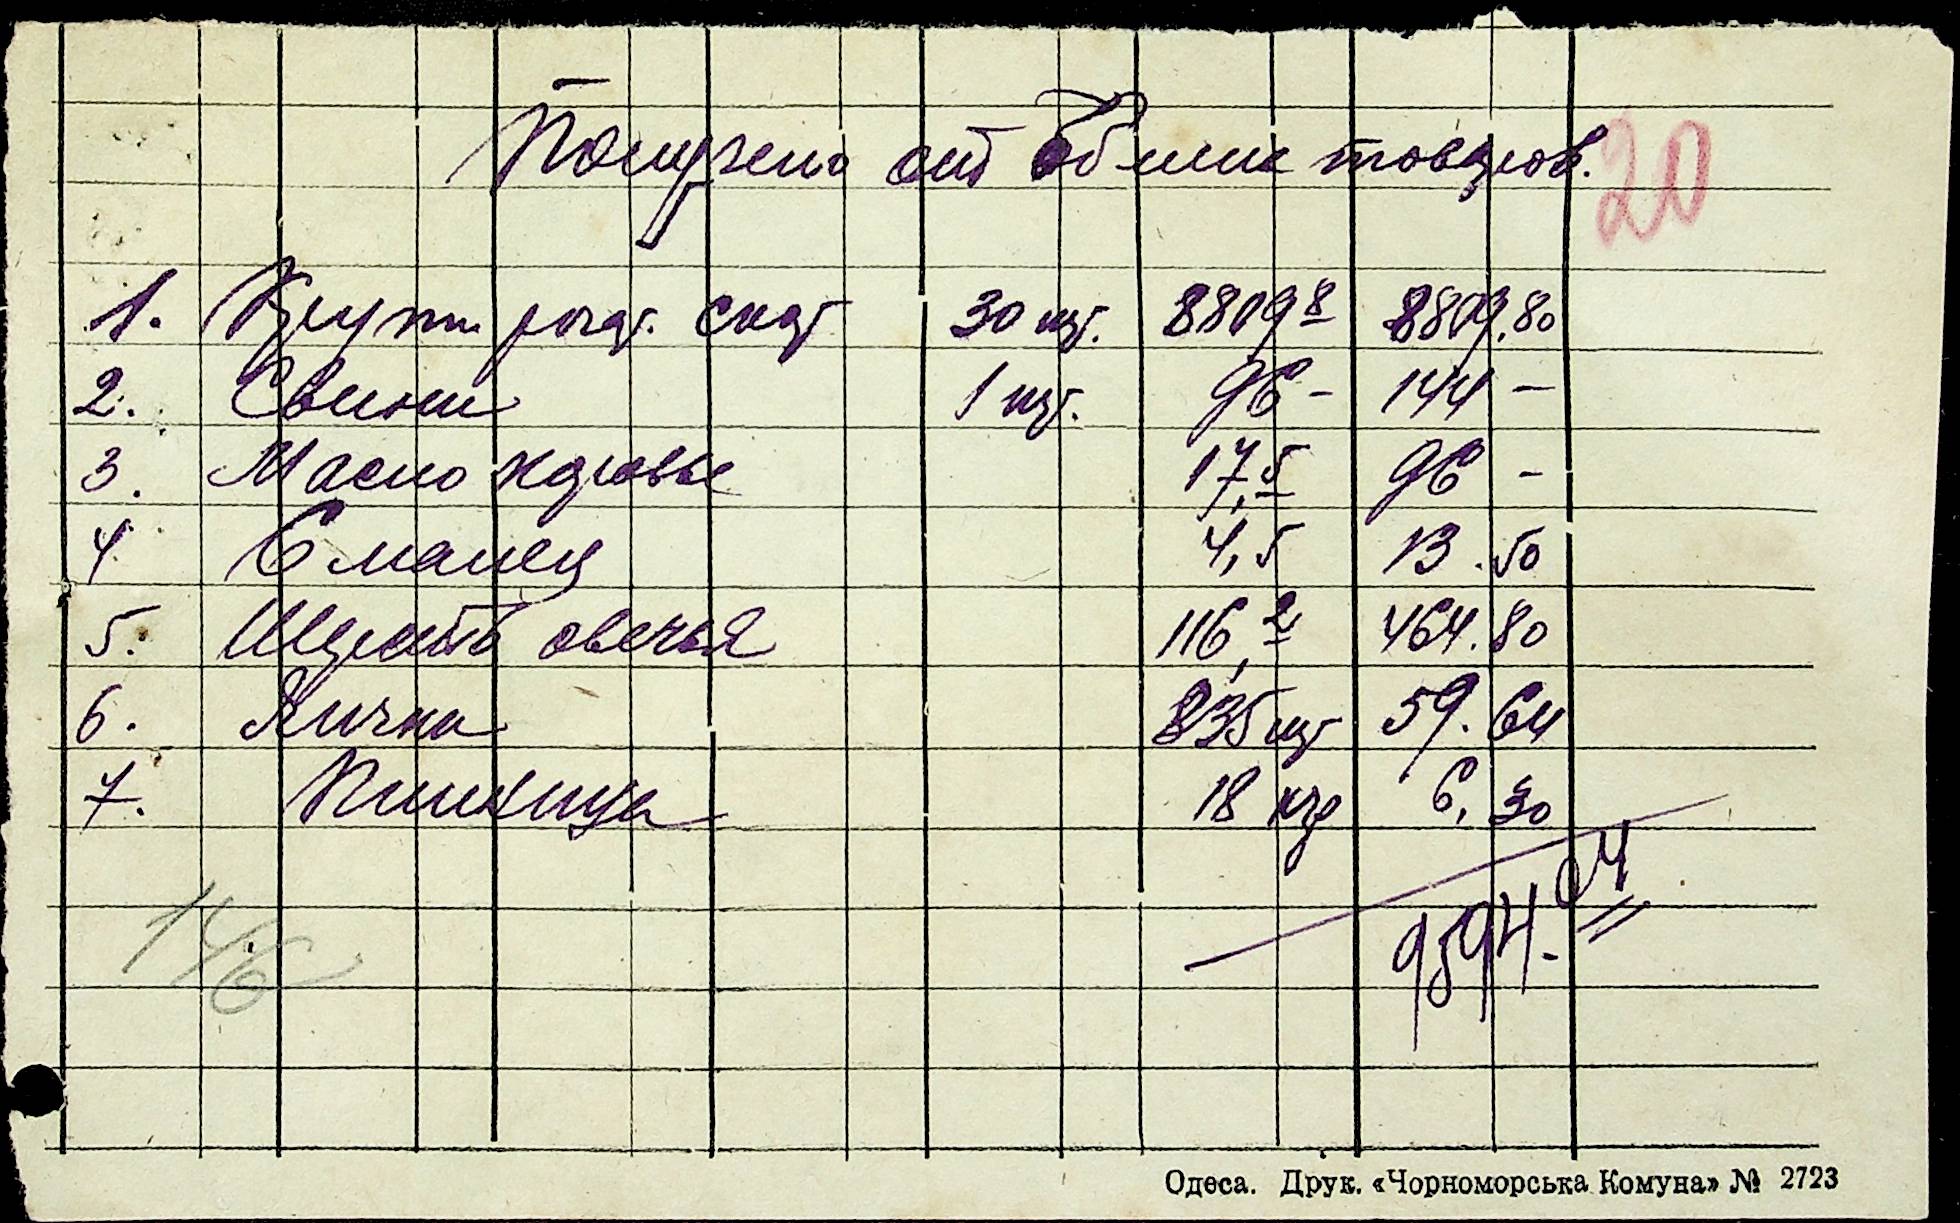 Получено от обмена товаров.
20
1. Крупн. рогат. скот 30 шт. 8809 8 8809.80
2. Свиньи 1 шт. 96 - 144 -
3. Масло коровье 17,5 96 -
4 Смалец 4,5 13.50
5. Шерсть овечья 116,2 464.80
6. Яички 835 шт 59.64
7. Пшеница 18 кгр 6.30
9594.04
14/6
Одеса. Друк. «Чорноморська Комуна» № 2723